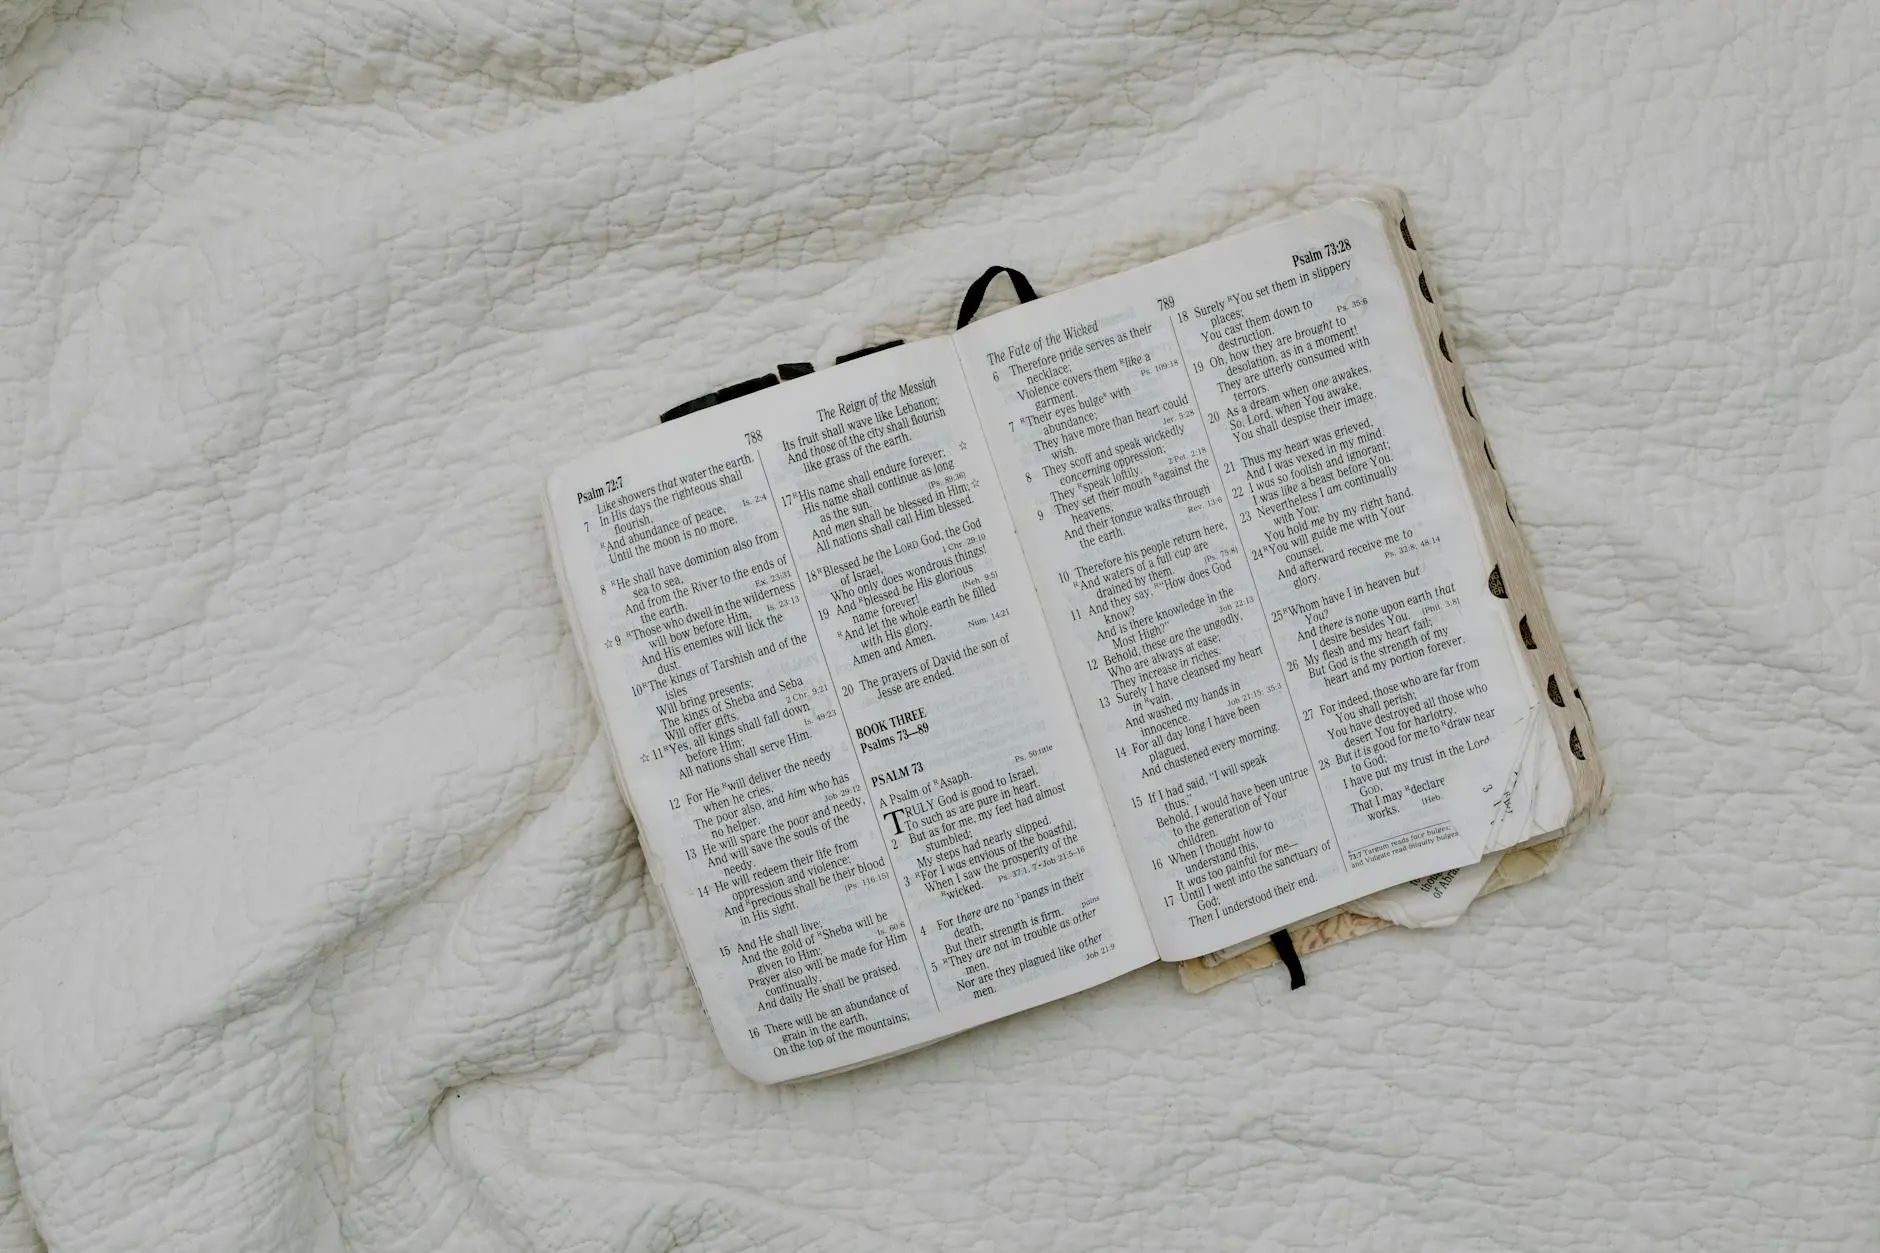 Psalm 72:7
788
The Reign of the Messiah
Like showers that water the earth.
7 In His days the righteous shall
flourish,
Is. 2:4
ᴿAnd abundance of peace,
Until the moon is no more.
8 ᴿHe shall have dominion also from
sea to sea,
And from the River to the ends of
the earth.
Ex. 23:31
☆ 9 ᴿThose who dwell in the wilderness
will bow before Him,
Is. 23:13
And His enemies will lick the
dust.
10 ᴿThe kings of Tarshish and of the
isles
Will bring presents;
The kings of Sheba and Seba
Will offer gifts.
2 Chr. 9:21
☆ 11 ᴿYes, all kings shall fall down
before Him;
Is. 49:23
All nations shall serve Him.
12 For He ᴿwill deliver the needy
when he cries,
The poor also, and him who has
no helper.
Job 29:12
13 He will spare the poor and needy,
And will save the souls of the
needy.
14 He will redeem their life from
oppression and violence;
And ᴿprecious shall be their blood
in His sight.
[Ps. 116:15]
15 And He shall live;
And the gold of ᴿSheba will be
given to Him;
Is. 60:6
Prayer also will be made for Him
continually,
And daily He shall be praised.
16 There will be an abundance of
grain in the earth,
On the top of the mountains;
Its fruit shall wave like Lebanon;
And those of the city shall flourish
like grass of the earth.
☆
17 ᴿHis name shall endure forever;
His name shall continue as long
as the sun.
[Ps. 89:36]
And men shall be blessed in Him; ☆
All nations shall call Him blessed.
18 ᴿBlessed be the LORD God, the God
of Israel,
1 Chr. 29:10
Who only does wondrous things!
19 And ᴿblessed be His glorious
name forever!
[Neh. 9:5]
ᴿAnd let the whole earth be filled
with His glory.
Num. 14:21
Amen and Amen.
20 The prayers of David the son of
Jesse are ended.
BOOK THREE
Psalms 73—89
PSALM 73
A Psalm of ᴿAsaph.
Ps. 50:title
TRULY God is good to Israel,
To such as are pure in heart.
2 But as for me, my feet had almost
stumbled;
My steps had nearly slipped.
3 ᴿFor I was envious of the boastful,
When I saw the prosperity of the
ᴿwicked.
Ps. 37:1, 7 • Job 21:5–16
4 For there are no ᵀpangs in their
death,
pains
But their strength is firm.
5 ᴿThey are not in trouble as other
men,
Job 21:9
Nor are they plagued like other
men.
The Fate of the Wicked
789
Psalm 73:28
6 Therefore pride serves as their
necklace;
Violence covers them ᴿlike a
garment.
Ps. 109:18
7 ᴿTheir eyes bulgeᴺ with
abundance;
They have more than heart could
wish.
Jer. 5:28
8 They scoff and speak wickedly
concerning oppression;
They ᴿspeak loftily.
2 Pet. 2:18
9 They set their mouth ᴿagainst the
heavens,
And their tongue walks through
the earth.
Rev. 13:6
10 Therefore his people return here,
ᴿAnd waters of a full cup are
drained by them.
[Ps. 75:8]
11 And they say, ᴿ“How does God
know?
And is there knowledge in the
Most High?”
Job 22:13
12 Behold, these are the ungodly,
Who are always at ease;
They increase in riches.
13 Surely I have cleansed my heart
in ᴿvain,
And washed my hands in
innocence.
Job 21:15; 35:3
14 For all day long I have been
plagued,
And chastened every morning.
15 If I had said, “I will speak
thus,”
Behold, I would have been untrue
to the generation of Your
children.
16 When I thought how to
understand this,
It was too painful for me—
17 Until I went into the sanctuary of
God;
Then I understood their end.
18 Surely ᴿYou set them in slippery
places;
Ps. 35:6
You cast them down to
destruction.
19 Oh, how they are brought to
desolation, as in a moment!
They are utterly consumed with
terrors.
20 As a dream when one awakes,
So, Lord, when You awake,
You shall despise their image.
21 Thus my heart was grieved,
And I was vexed in my mind.
22 I was so foolish and ignorant;
I was like a beast before You.
23 Nevertheless I am continually
with You;
You hold me by my right hand.
24 ᴿYou will guide me with Your
counsel,
Ps. 32:8; 48:14
And afterward receive me to
glory.
25 ᴿWhom have I in heaven but
You?
[Phil. 3:8]
And there is none upon earth that
I desire besides You.
26 My flesh and my heart fail;
But God is the strength of my
heart and my portion forever.
27 For indeed, those who are far from
You shall perish;
You have destroyed all those who
desert You for harlotry.
28 But it is good for me to ᴿdraw near
to God;
I have put my trust in the Lord
GOD,
That I may ᴿdeclare
works.
[Heb.
73:7 Targum reads face bulges;
and Vulgate read iniquity bulges
of Abra